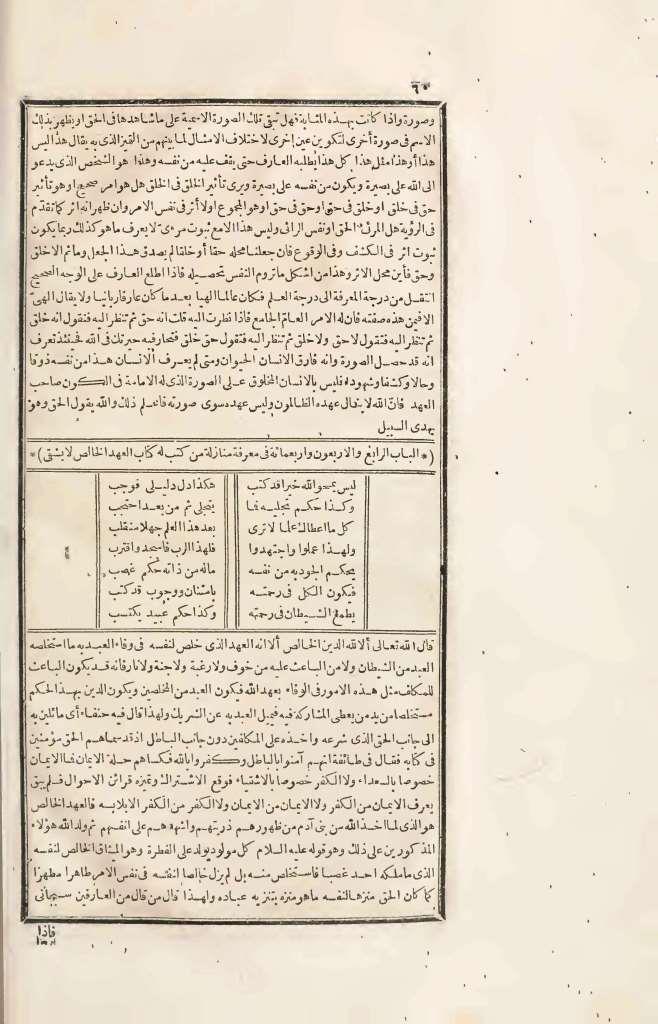 ٦٠
وصورة واذا كانت بهذه المثابة فهل تبقى تلك الصورة الاسمية على ما شاهدها فى الحق او يظهر بذلك
الاسم فى صورة أخرى لتكوين عين اخرى لاختلاف الامثال لما بينهم من التميز الذى به يقال هذا ليس
هذا أو هذا مثل هذا كل هذا يطلبه العارف حتى يقف عليه من نفسه وهذا هو الشخص الذى يدعو
الى الله على بصيرة ويكون من نفسه على بصيرة ويرى تأثير الخلق فى الخلق هل هو امر صحيح او هو تأثير
حق فى خلق او خلق فى حق او حق فى حق او هو المجموع او لا أثر فى نفس الامر وان ظهر انه اثر كما تقدّم
فى الرؤية هل المرئى الحق او نفس الرائى وليس هذا الامع ثبوت مرءى لا يعرف ما هو كذلك ربما يكون
ثبوت اثر فى الكشف وفى الوقوع فان جعلنا محله حقا أو خلقا لم يصدق هذا الجعل وما ثم الا خلق
وحق فأين محل الاثر وهذا من اشكل ما تروم النفس تحصيله فاذا اطلع العارف على الوجه الصحيح
انتقل من درجة المعرفة الى درجة العلم فكان عالما الهيا بعد ما كان عارفا ربانيا ولا يقال الهىّ
الا فمين هذه صفته فان له الامر العامّ الجامع فاذا نظرت اليه قلت انه حق ثم تنظر اليه فنقول انه خلق
ثم تنظر اليه فتقول لا حق ولا خلق ثم تنظر اليه فتقول حق خلق فتحار فيه حيرتك فى الله فحينئذ تعرف
انه قد حصل الصورة وانه فارق الانسان الحيوان ومتى لم يعرف الانسان هذا من نفسه ذوقا
وحالا وكشفا وشهودا فليس بالانسان المخلوق على الصورة الذى له الامامة فى الكون صاحب
العهد فانّ الله لا ينال عهده الظالمون وليس عهده سوى صورته فاعلم ذلك والله يقول الحق وهو
يهدى السبيل
(* الباب الرابع والاربعون واربعمائة فى معرفة منازلة من كتب له كتاب العهد الخالص لا يشقى)*
ليس يمحو الله خيرا قد كتب هكذا دل دليلى فوجب
وكذا حكم تجليه فما يتجلى ثم من بعد احتجب
كل ما اعطاك علما لا ترى بعد هذا العلم جهلا منقلب
ولهذا عملوا واجتهدوا فلهذا الرب فاسجد واقترب
يحكم الجود به من نفسه ما له من ذاته حكم غصب
فيكون الكل فى رحمته بامتنان ووجوب قد كتب
يطمع الشيطان فى رحمته وكذا حكم عبيد يكتسب
قال الله تعالى ألا لله الدين الخالص ألا انه العهد الذى خلص لنفسه فى وفاء العبد به ما استخلصه
العبد من الشيطان ولا من الباعث عليه من خوف ولا رغبة ولا جنة ولا نار فانه قد يكون الباعث
للمكلف مثل هذه الامور فى الوفاء بعهد الله فيكون العبد من المخلصين ويكون الدين بهذا الحكم
مستخلصا من يد من يعطى المشاركة فيه فيميل العبد به عن الشريك ولهذا قال فيه حنفاء أى مائلين به
الى جانب الحق الذى شرعه واخذه على المكلفين دون جانب الباطل اذ قد سماهم الحق مؤمنين
فى كتابه فقال فى طائفة انهم آمنوا بالباطل وكفروا بالله فكساهم حلة الايمان فما الايمان
خصوصا بالسعداء ولا الكفر خصوصا بالاشقياء فوقع الاشتراك وتميزه قرائن الاحوال فلم يبق
يعرف الايمان من الكفر ولا الايمان من الايمان ولا الكفر من الكفر الا بلابسه فالعهد الخالص
هو الذى لما اخذ الله من بنى آدم من ظهورهم ذريتهم واشهدهم على انفسهم ثم ولد الله هؤلاء
المذكورين على ذلك وهو قوله عليه السلام كل مولود يولد على الفطرة وهو الميثاق الخالص لنفسه
الذى ما ملكه احد غصبا فاستخلص منه بل لم يزل خالصا لنفسه فى نفس الامر طاهرا مطهرا
كما كان الحق منزها لنفسه ما هو منزه بتنزيه عباده ولهذا قال من قال من العارفين سبحانى
فاذا